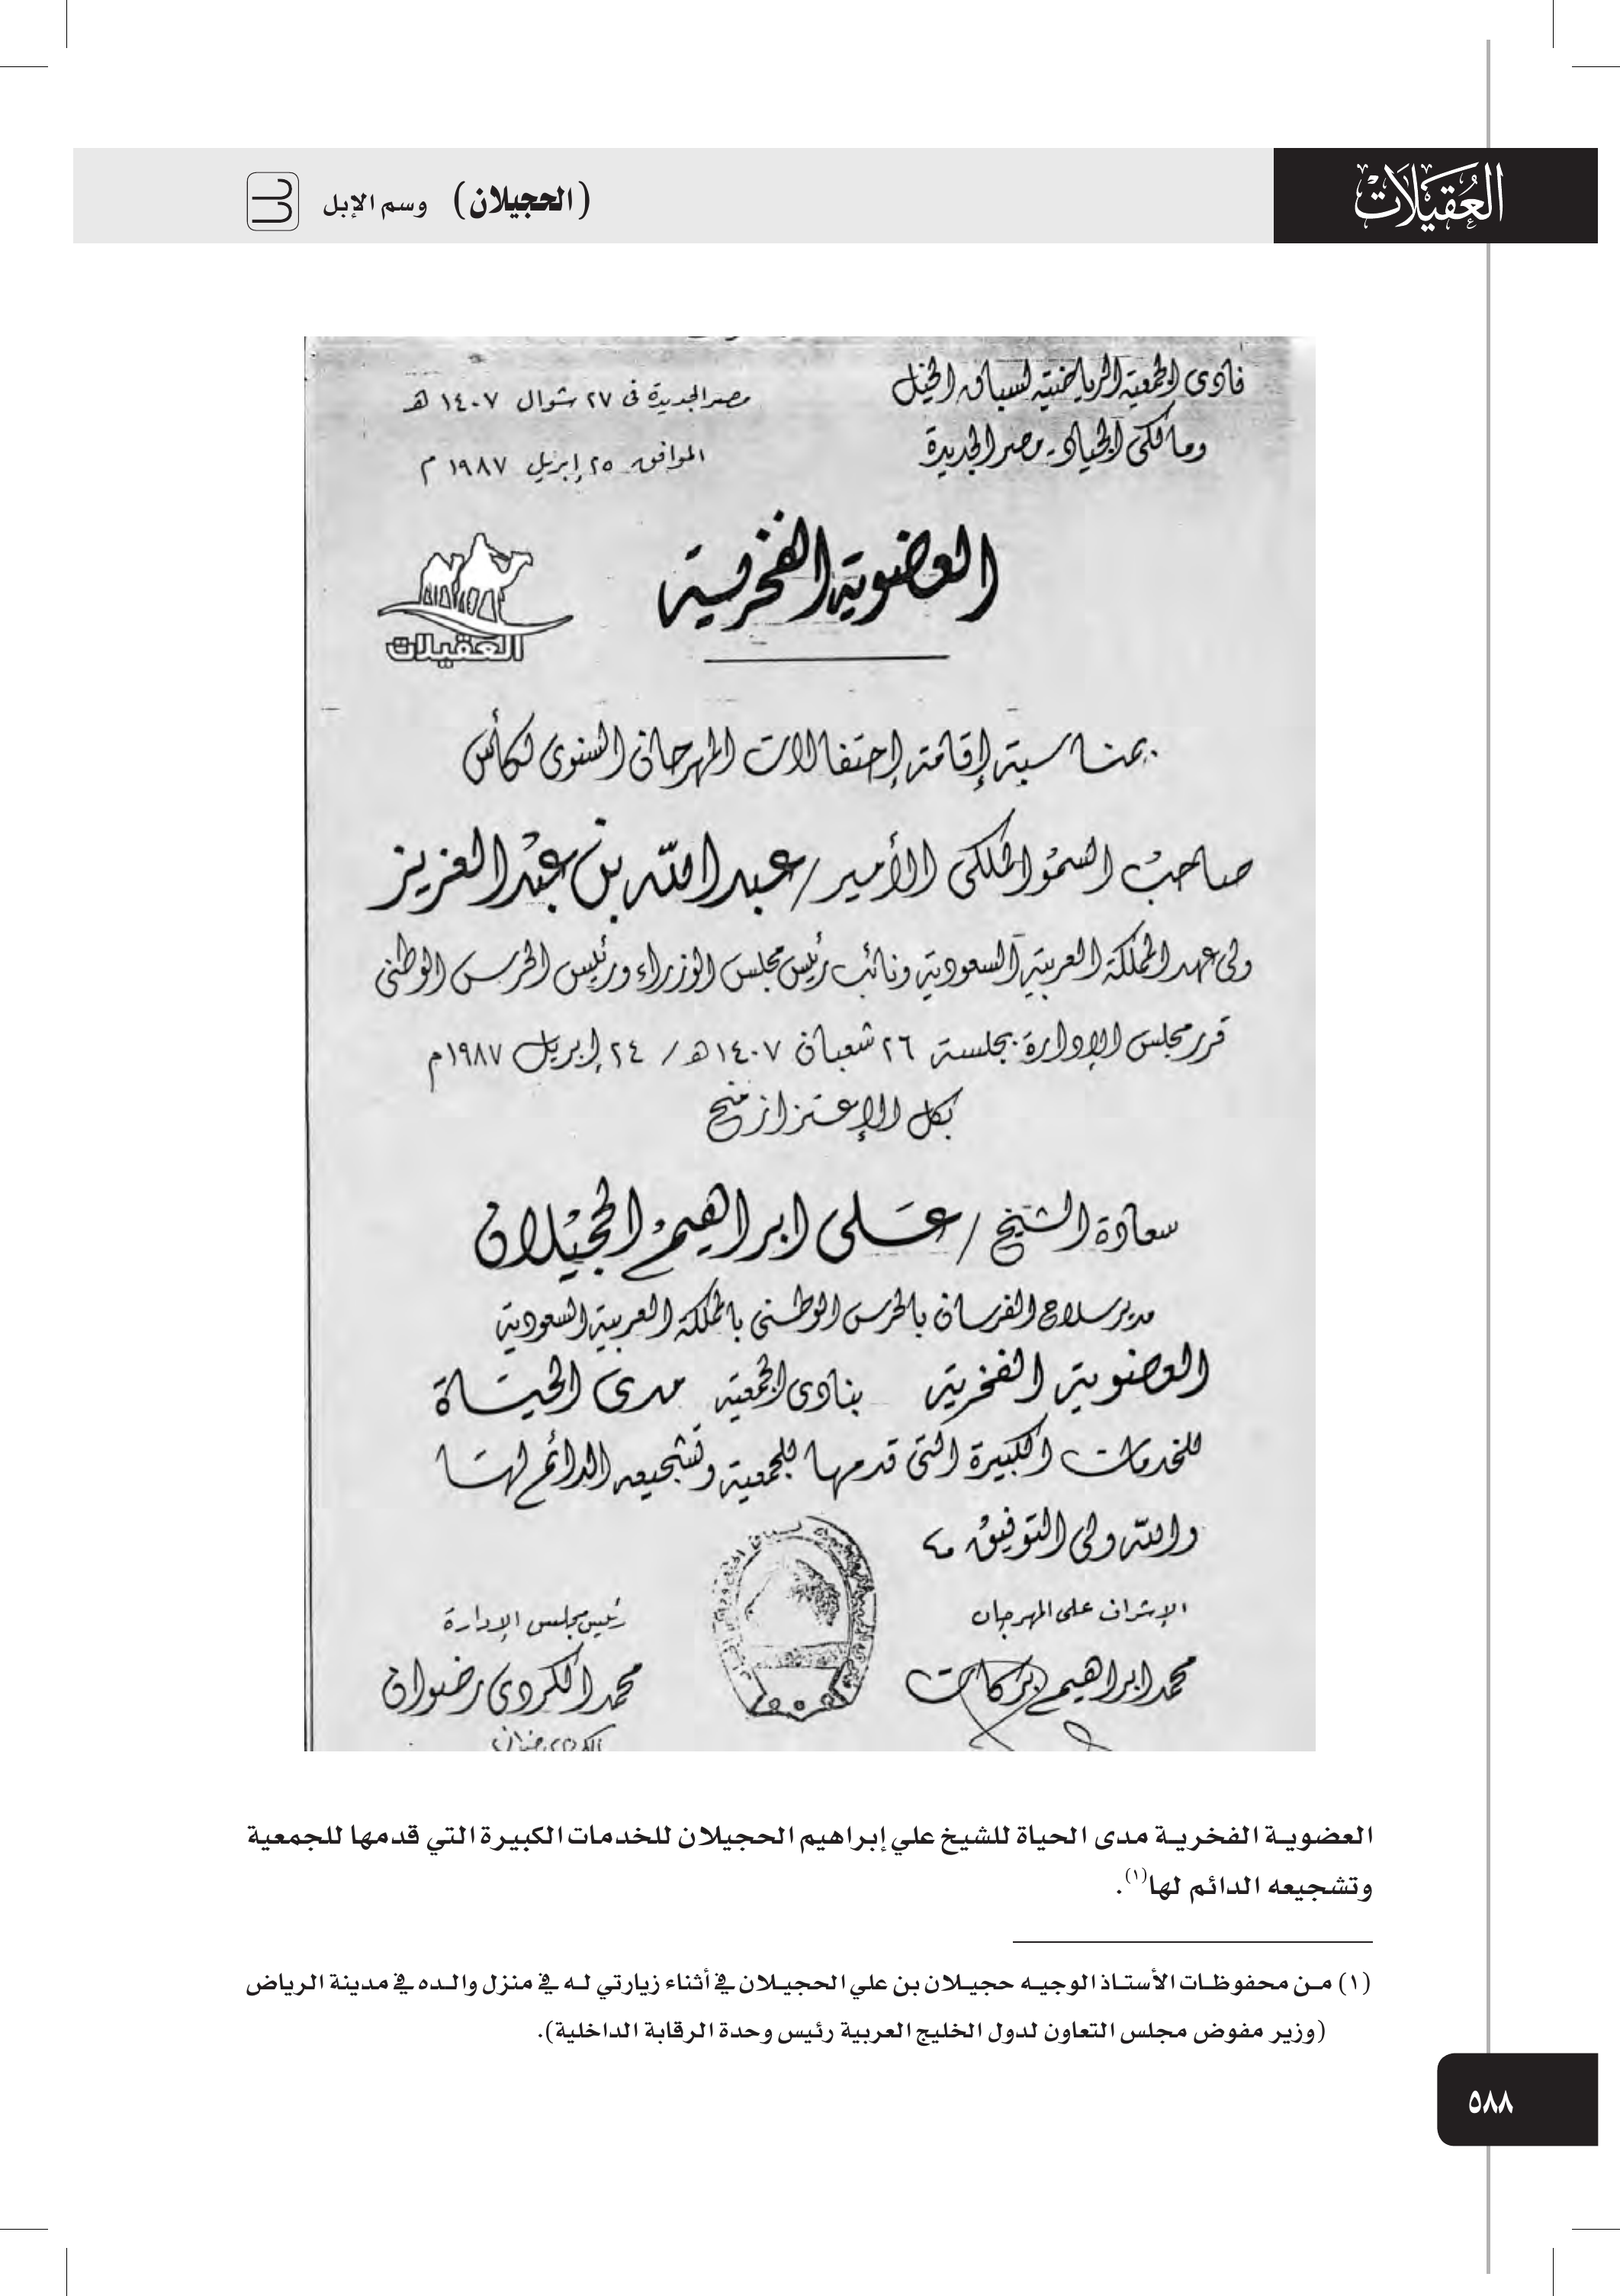 العُقيلات
(الحجيلان) وسم الإبل
نادى الجمعية الرياضية لسباق الخيل
ومالكى الجياد - مصر الجديدة
مصر الجديدة فى ٢٧ شوال ١٤٠٧ هـ
الموافق ٢٥ إبريل ١٩٨٧ م
العضوية الفخرية
العقيلات
بمناسبة إقامة إحتفالات المهرجان السنوى لكأس
صاحب السمو الملكى الأمير / عبد الله بن عبد العزيز
ولى عهد المملكة العربية السعودية ونائب رئيس مجلس الوزراء ورئيس الحرس الوطنى
قرر مجلس الإدارة بجلسة ٢٦ شعبان ١٤٠٧ هـ / ٢٤ إبريل ١٩٨٧ م
بكل الإعتزاز منح
سعادة الشيخ / على ابراهيم الحجيلان
مدير سلاح الفرسان بالحرس الوطنى بالمملكة العربية السعودية
العضوية الفخرية بنادى الجمعية مدى الحياة
للخدمات الكبيرة التى قدمها للجمعية وتشجيعه الدائم لها
والله ولى التوفيق
الإشراف على المهرجان
محمد ابراهيم بركات
رئيس مجلس الإدارة
محمد الكردى رضوان
العضويـة الفخريـة مدى الحياة للشيخ علي إبراهيم الحجيلان للخدمات الكبيرة التي قدمها للجمعية
وتشجيعه الدائم لها(١).
(١) مـن محفوظـات الأستـاذ الوجيـه حجيـلان بن علي الحجيـلان في أثناء زيارتي لـه في منزل والـده في مدينة الرياض
(وزير مفوض مجلس التعاون لدول الخليج العربية رئيس وحدة الرقابة الداخلية).
٥٨٨